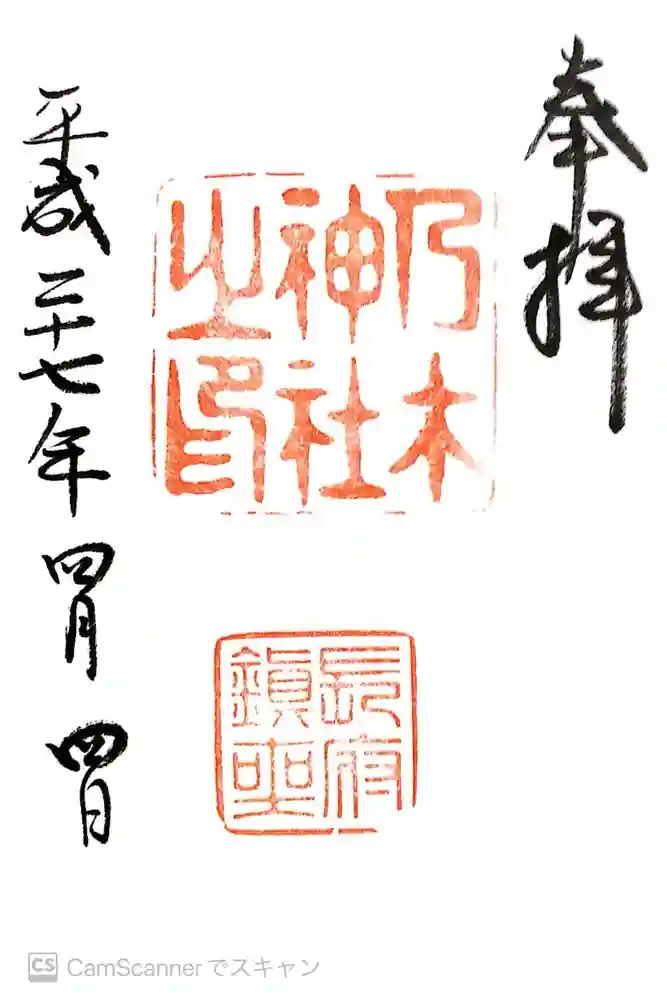 奉拝
乃木
神社
之印
長府
鎮座
平成二十七年四月四日
CS CamScanner でスキャン